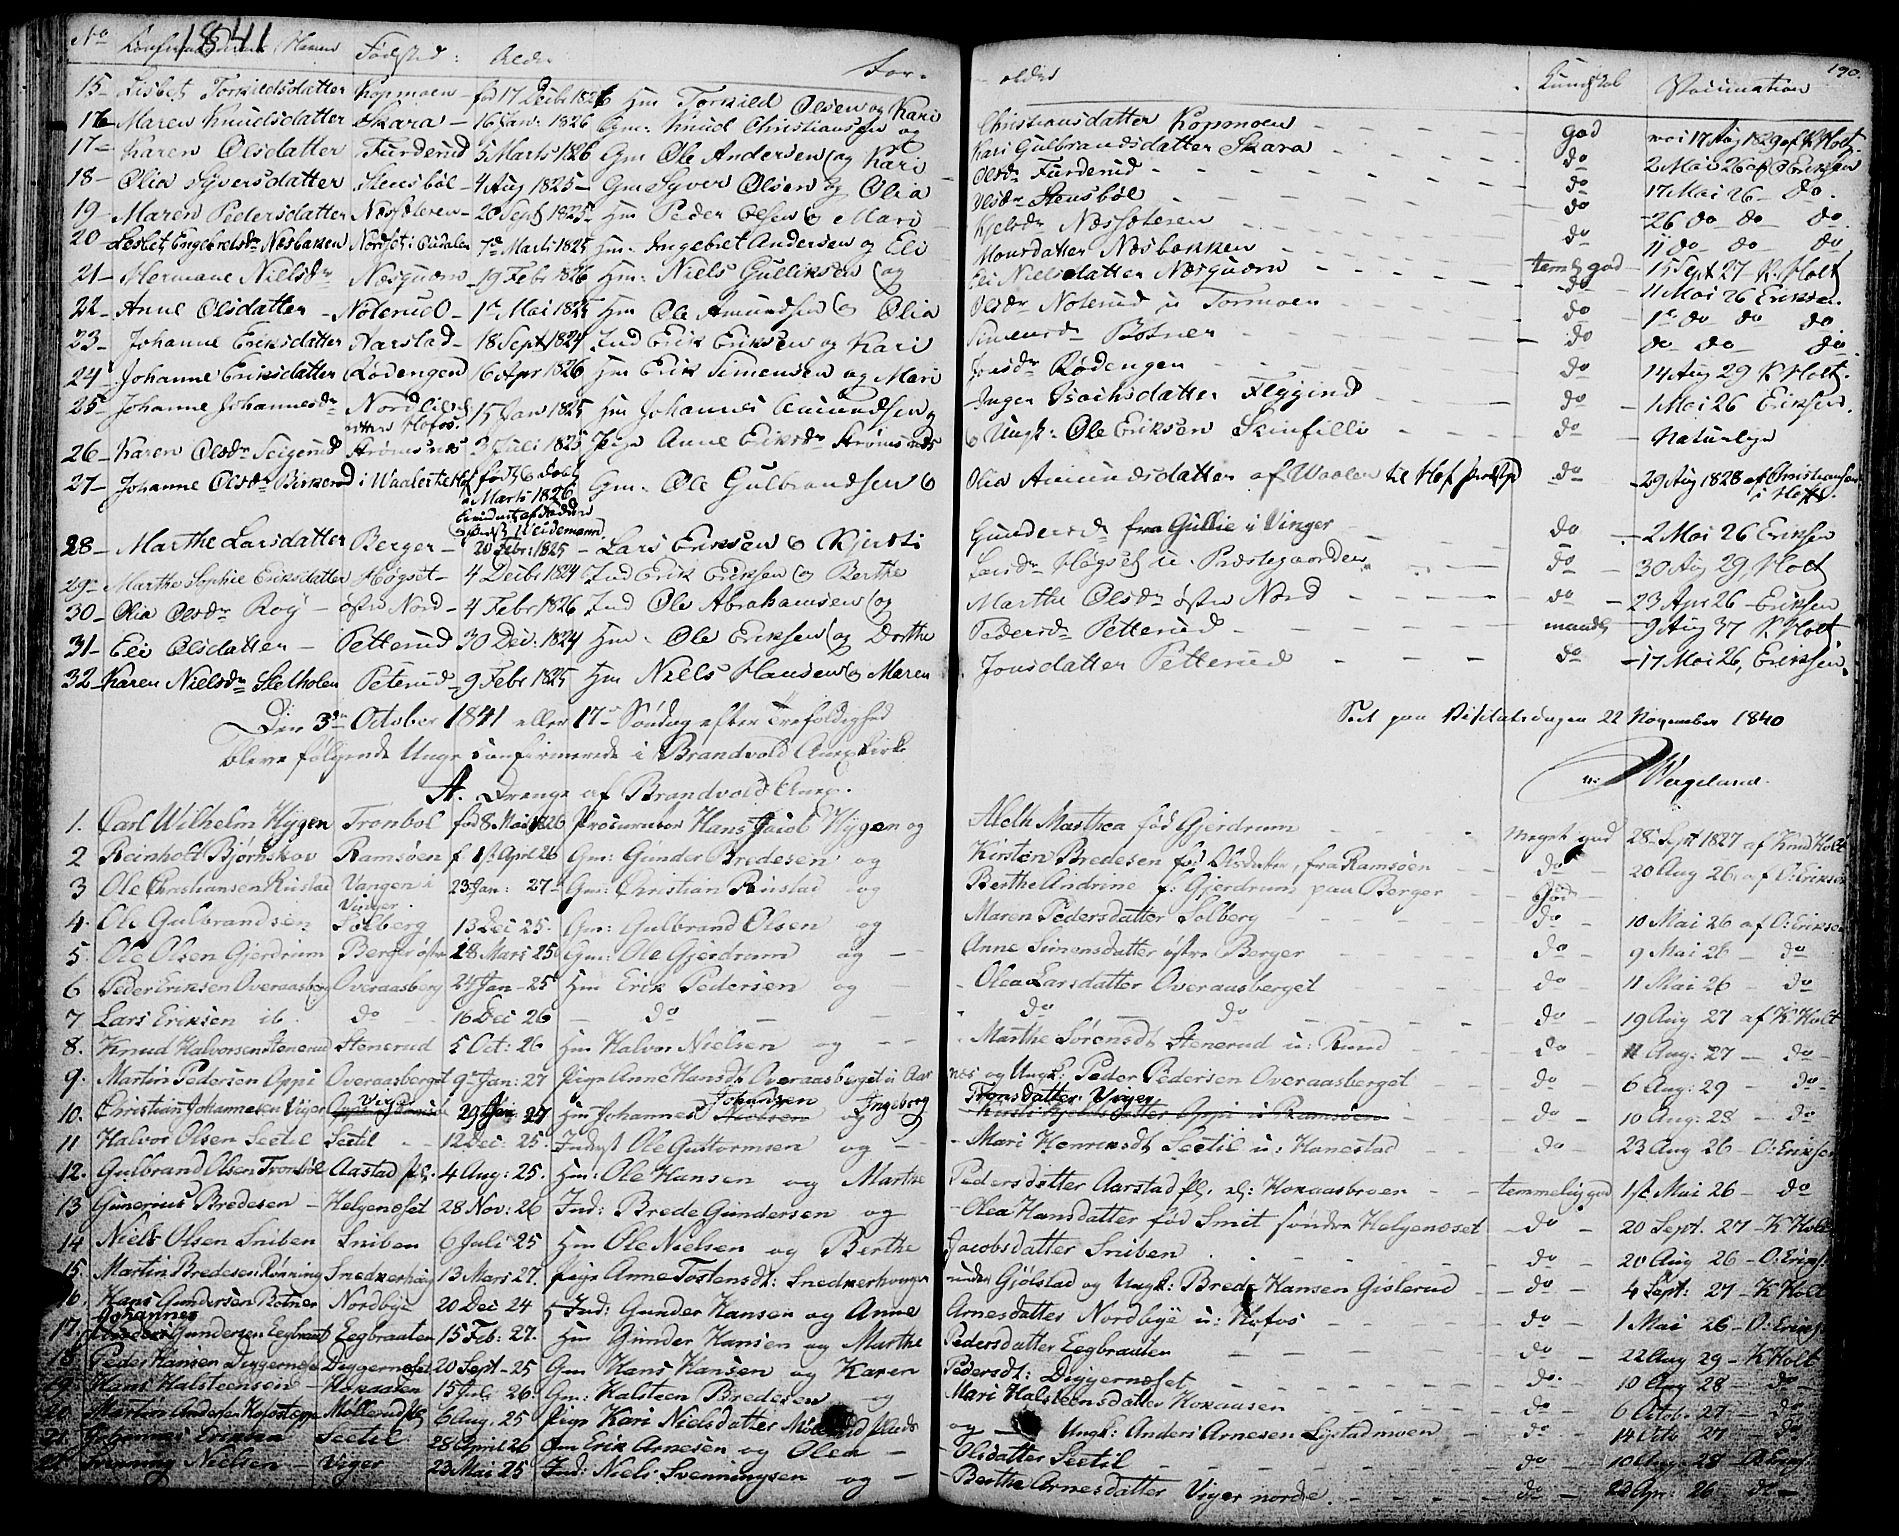 1841
No Confirmandernes Navne Fødested: Alder For- ældre Kundskab Vaccination 190
15- Lisbet Torkildsdatter Kopmoen- fød 17 Decbr 1826 Hm Torkild Olsen og Kari Christiansdatter Kopmoen - god - 17 Aug 1829 af K Holt
16- Maren Knudsdatter Skara- 16 Jan: 1826 Gm: Knud Christiansen og Kari Gulbrandsdatter Skara - do 2 Mai 26 af O Eriksen
17- Karen Olsdatter Furderud 5 Marts 1826 Gm Ole Andersen og Kari Olsdr Furderud - do 17 Mai 26 - do.
18- Olia Syversdatter Stensbøl- 4 Aug 1825- Gm Syver Olsen og Olia Olsdr Stensbøl - do 26 do do do
19- Maren Pedersdatter Næssæteren- 20 Sept 1825- Hm Peder Olsen og Mari Kjelsdr Næssæteren - do 11 do - do - do
20 Lesbet Engebretsdr Næsbakken Nordset i Oudalen 7de Marts 1825 Hm. Ingebret Andersen og Eli Monsdatter Næsbakken - temlg god - 15 Sept 27 K Holt
21- Hermane Nielsdr Næsquærn- 19 Febr 1826 Hm: Niels Gulliksen og Eli Nielsdatter Næsquærn - do - 11 Mai 26 Eriksen
22- Anne Olsdatter - Noterud- 1te Mai 1825 Hm Ole Amundsen og Olia Olsdr Noterud u Tormoen - do 1te do do do.
23- Johanne Eriksdatter Aarstad- 18 Sept 1824 Ind Erik Eriksen og Kari Simensdr Botner - do do do - do.
24- Johanne Eriksdatter Rødengen 16 Apr 1826 Hm Erik Simensen og Mari Jonsdr Rødengen - do 14 Aug 29 K Holt.
25- Johanne Johannesdr Nordlie Hofos. 15 Jan 1825 Hm Johannes Amundsen og Inger Isachsdatter Flyginд - do - 1 Mai 26 Eriksen.
26- Karen Olsdr Seigerud Strømsnæs 3 Juli 1825 Pige Anne Eriksdr Strømsnæs og Ungk: Ole Eriksen Skinfilli - do - Naturlige
27- Johanne Olsdr Birkerud i Waaler til Hof født 6 i Marts 1826 Gm: Ole Gulbrandsen og Olia Amundsdatter af Waaler til Hof - do - 29 Aug 1828 af Christiansen i Hoff.
28- Marthe Larsdatter Berger- 20 Febr: 1825- Lars Eriksen og Kjersti Gundersdr fra Gullie i Vinger - do - 2 Mai 26 Eriksen
29- Marthe Sophie Eriksdatter Høgset- 4 Decbr 1824 Ind Erik Eriksen og Berthe Larsdr Høgset u. Præstegaarden - do - 30 Aug 29, Holt
30- Olia Olsdr Roy - østre Nord - 4 Febr 1826 Ind Ole Abrahamsen og Marthe Olsdr østre Nord - do - 23 Apr 26 - Eriksen
31- Eli Olsdatter - Petterud 30 Dec. 1824 Hm. Ole Eriksen og Dorthe Pedersdr Petterud - maadl - 9 Aug 37 K Holt
32- Karen Nielsdr Sletholen Peterud- 9 Febr 1825 Hm Niels Hansen og Maren Jonsdatter Petterud - do - 17 Mai 26, Eriksen.
Den 3die October 1841 eller 17de Søndag efter Trefoldighed
bleve følgende Unge confirmerede i Brandvold Anex Kirke
Seet paa Visitatsdagen 22 November 1840
Wergeland.
A. Drenge af Brandvold Anex.
1. Carl Wilhelm Hÿgen Tronbøl fød 8 Mai 1826 Procurator Hans Jacob Hÿgen og Aleth Marthea fød Gjerdrum - meget god 28 Sept 1827 af Knud Holt
2 Reinholt Bjørnskov Ramsøen f 1st April 26 Gm: Gunder Bredesen og Kirsten Bredesen fød Olsdatter, fra Ramsøen - do 20 Aug 26, af O: Eriksen
3 Ole Christiansen Rustad Vangen i Vinger 23 Jan: 27 Gm: Christian Rustad og Berthe Andrine f: Gjerdrum paa Berger - God
4. Ole Gulbrandsen Solberg 13 Dec 25. Gm: Gulbrand Olsen og Maren Pedersdatter Solberg - do - 10 Mai 26 af O: Eriksen
5. Ole Olsen Gjerdrum Berger østre 28 Mars 25 Gm: Ole Gjerdrum og - Anne Simensdatter østre Berger - do - 9 Mai 26 - do
6 Peder Eriksen Overaasberg Overaasberg 24 Jan - 25 Hm Erik Pedersen og - Olea Larsdatter Overaasberget do - 11 Mai 26 - do
7 Lars Eriksen ib. do - 16 Dec 26 - do - do - do - do - 19 Aug 27 af K: Holt
8. Knud Halvorsen Stenerud Stenerud 5 Oct: 26 Hm Halvor Nielsen og - - Marthe Sørensdt Stenerud u: Rund - do - 11 Aug: 27 - do -
9. Martin Pedersen Oppi Overaasberget 9 Jan: 27 Pige Anne Hansdt Overaasberget i Aar næs og Ungk: Peder Pedersen Overaasberget - do - 6 Aug: 29 - do -
10. Christian Johannesen Viger Viger 29 Jan 27 Hm Johannes Johansen og Ingeborg Tronsdatter Viger - do - 10 Aug: 28 - do
11 Halvor Olsen Seetil Seetil - 12 Dec: 25. Indst Ole Guttormsen og - - Mari Henriksdt Seetil u: Hanestad - do - 23 Aug 26 - O: Eriksen
12. Gulbrand Olsen Tronbøl Aastad pl. 4 Aug: 25. Hm: Ole Hansen og Marthe Pedersdatter Aarstad pl. el: Hokaasbroen - - temmelig god 1ste Mai 26 - do
13 Gunerius Bredesen - Helgenæset 28 Nov: 26 Ind: Brede Gundersen og - Olea Hansdatter fød Smit søndre Helgenæset - do - 20 Sept. 27 - K Holt
14 Niels Olsen Sniben Sniben 6 Juli 25 Hm Ole Nielsen og Berthe Jacobsdatter Sniben - do 20 Aug 26 - O: Eriks
15. Martin Bredesen Rønning Snedkerhaug 13 Mars 27. Pige Anne Tostensdt: Snedkerhaugen under Gjølstad og Ungk: Brede Hansen Gislerud - do - 4 Sept: 27 - K Holt
16. Hans Gundersen Rotner Nordbÿe 20 Dec 24 Ind: Gunder Hansen og Anne Arnesdatter Nordbÿe u: Hofos - do - 1 Mai 26 - O: Eriks
17. Johannes Gundersen Eegbraat Eegbraaten 15 Feb: 27. Hm Gunder Hansen og Marthe Pedersdatter Eegbraaten - do 22 Aug 29 - K Holt
18. Peder Hansen Diggernæs Diggernæset 20 Sept - 25 Gm Hans Hansen og Karen Pedersdt: Diggernæset - do - 10 Aug 28 - do -
19. Hans Halsteensen Hokaasen 15 Juli 26. Gm: Halsteen Bredesen og Mari Halsteensdatter Hokaasen - do - 6 Octob. 27 - do
20. Martin Andersen Møllerud pl 6 Aug. 25 Pige Kari Nielsdatter Møllerud Plads og Ungk: Anders Arnesen Lystadmoen - do - 14 Octo 27 do
21. Johannes Eriksen Seetil 28 April 26 Gm Erik Arnesen og Olea - Olsdatter Seetil - do - 10 Aug: 28 - O: Eriks
22. Svenning Nielsen - Viger 23 Mai 25 Ind: Niels Svenningsen og - Berthe Arnesdatter Viger nordre. - do - 22 Apr: 26 - do -